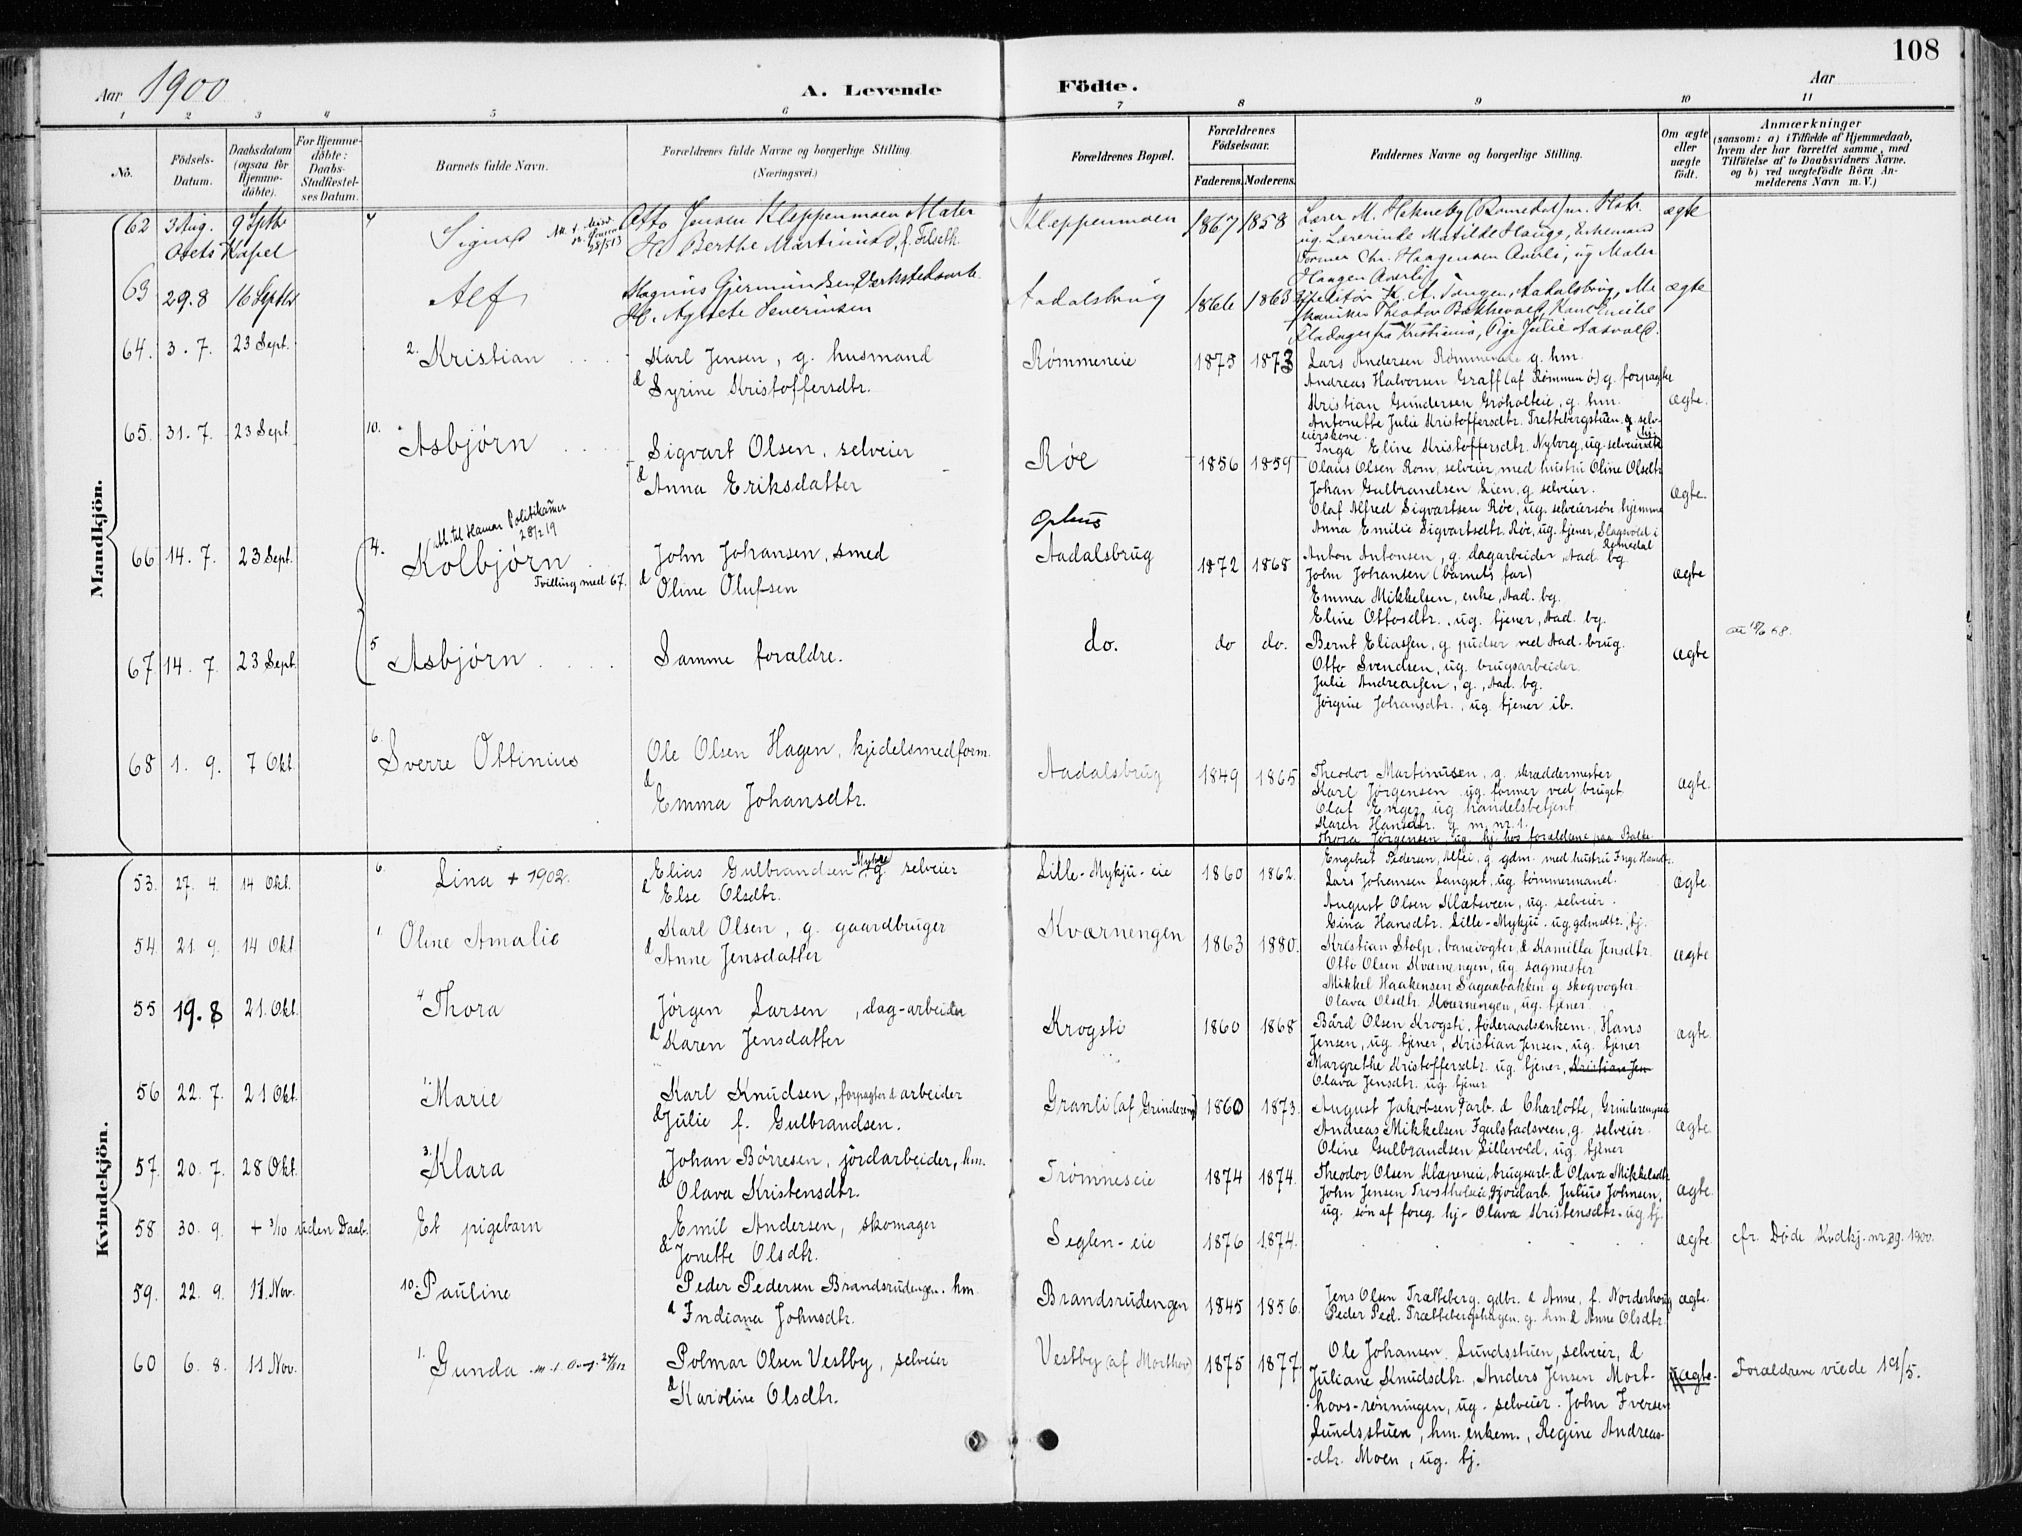 108
Aar 1900
A. Levende Födte.
Aar
1 2 3 4 5 6 7 8 9 10 11
No.
Födsels-Datum.
Daabsdatum (ogsaa for Hjemme-döbte).
For Hjemme-döbte: Daabs-Stadfæstel-ses Datum.
Barnets fulde Navn.
Forældrenes fulde Navne og borgerlige Stilling.
(Næringsvei.)
Forældrenes Bopæl.
Forældrenes Födselsaar.
Faderens. Moderens.
Faddernes Navne og borgerlige Stilling.
Om ægte eller uægte født.
Anmærkninger
(saasom: a) i Tilfælde af Hjemmedaab, hvem der har forrettet samme, med Tilföielse af to Daabsvidners Navne. og b) ved uægtefödte Börn An-melderens Navn m. V.)
Mandkjön.
62 3 Aug. 9 Septbr 4 Sigurd Otto Jensen Kleppenmoen Maler Kleppenmoen 1867 1858 ægte
Aasets Kapel H. Berthe
ug. Lærerinde Matilde Hauge,
Former Chr. Haagensen Averli, ug Maler
Haagen Averli
63 29.8 16 Septbr Alf Magnus Gjermundsen Værkstedsarb. Aadalsbrug 1866 1863 ægte
H. Agnete Severinsen
64. 3. 7. 23 Sept. 2. Kristian Karl Jensen, g. husmand Rømmeneie 1875 1873 Lars Andersen Rømmeneie g. hm.
& Syrine Kristoffersdtr. Andreas Halvorsen Graff (af Rømmen ø) g. forpagter
Kristian Gundersen Grøholteie, g. hm. ægte.
Antonette Julie Kristoffersdtr. Trættebergstuen g. selv-
eierskone.
Inga Eline Kristoffersdtr. Nyborg, ug. selveierdtr. hj.
65. 31. 7. 23 Sept. 10. Asbjørn Sigvart Olsen, selveier Røe 1856 1859 Olaus Olsen Rom, selveier, med hustru Oline Olsdtr.
& Anna Eriksdatter Johan Gulbrandsen Lien, g. selveier. ægte.
Olaf Alfred Sigvartsen Røe, ug. selveiersøn hjemme
Anna Emilie Sigvartsdtr. Røe, ug. tjener, Slagsvold i Romedal
66 14. 7. 23 Sept. 4. Kolbjørn John Johansen, smed Aadalsbrug 1872 1868 Anton Antonsen, g. dagarbeider, Aad. bg.
28/2 19
Tvilling med 67. & Oline Olufsen John Johansen (barnets far) ægte
Emma Mikkelsen, enke, Aad. bg.
Eline Ottosdtr., ug. tjener, Aad. bg.
67. 14. 7. 23 Sept. 5 Asbjørn Samme forældre. do. do do. Bernt Eliassen, g. pudser ved Aad. brug. ægte
Otto Svendsen, ug. brugsarbeider.
Julie Andreassen, g., Aad. bg.
Jørgine Johansdtr., ug. tjener ib.
68 1. 9. 7 Okt. 6. Sverre Ottinius Ole Olsen Hagen, kjedelsmedform. Aadalsbrug 1849 1865 Theodor Martinusen, g. skræddermester ægte.
& Emma Johansdtr. Karl Jörgensen ug. former ved bruget
Olaf Enger ug. handelsbetjent
Karen Hansdtr. g. m. nr. 1.
Thora Jørgensen ug. hj. hos forældrene paa
Kvindekjön.
53. 27. 4. 14 Okt. 6. Lina + 1902. Elias Gulbrandsen g selveier Lille-Mykju-eie 1860 1862. Engebret Pedersen, g gdm. med hustru Inge Hansdtr.
& Else Olsdtr. Lars Johansen Langset, ug. tømmermand. ægte.
August Olsen Klætsveen, ug. selveier.
Gina Hansdtr. Lille-Mykju. ug. gdmdtr., hj.
54. 21. 9. 14 Okt. 1 Oline Amalie Karl Olsen, g. gaardbruger Kværnengen 1863 1880. Kristian Stolp, banevogter, & Kamilla Jensdtr. ægte
& Anne Jensdatter Otto Olsen Kværnengen, ug. sagmester
Mikkel Haakensen Sagaabakken g. skogvogter
Olava Olsdtr. Kværnengen, ug. tjener
55 19. 8 21. Okt. 4 Thora Jörgen Larsen, dag-arbeider Krogsti 1860 1868 Bård Olsen Krogsti, føderaadsenkem., Hans ægte.
& Karen Jensdatter Jensen, ug. tjener, Kristian Jensen, ug. tjener
Margrethe Kristoffersdtr. ug. tjener, Kristian Jen
Olava Jensdtr. ug. tjener
56 22. 7. 21 Okt. 1. Marie Karl Knudsen, forpagter & arbeider Granli (af Grinderen) 1860 1873. August Jakobsen, arb. & Charlotte, Grinderengeie
& Julie f. Gulbrandsen. Andreas Mikkelsen Igulstadsveen, g. selveier. ægte.
Oline Gulbrandsen Lillevold, ug. tjener
57. 20. 7. 28 Okt. 3. Klara Johan Børresen, jordarbeider, hm. Trømneseie 1874 1874. Theodor Olsen Klæpeneie, brugsarb. & Olava Mikkelsdtr.
& Olava Kristensdtr. John Jensen Trostholseie, g. jordarb. Julius Johnsen, ægte.
ug. søn af foreg. hj. Olava Kristensdtr. ug. hj.
58. 30. 9. + 3/10 uden Daab. Et pigebarn Emil Andersen, skomager Seglen-eie 1876 1874. ægte cfr. Døde Kvdkj. nr 39. 1900.
& Jonette Olsdtr.
59. 22. 9. 11. Nov. 10. Pauline Peder Pedersen Brandsrudengen. hm. Brandsrudengen 1845 1856. Jens Olsen Trætteberg, gdbr. & Anne, f. Norderhoug ægte.
& Indiana Johnsdtr. Peder Ped. Trættebergshagen. g. hm. & Anne Olsdtr.
60 6. 8. 11 Nov. 1. Gunda Polmar Olsen Vestby, selveier Vestby (af Morthov) 1875 1877 Ole Johansen Lundsstuen, selveier, & uægte. Forældrene viede 19/5.
& Karoline Olsdtr. Juliane Knudsdtr., Anders Jensen Mort-
hovs-rønningen, ug. selveier. John Iversen
Lundsstuen, hm. enkem., Regine Andreas-
-dtr. Moen, ug. hj.